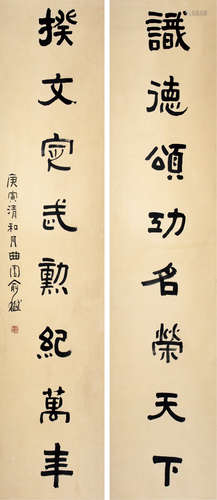 識德頌功名榮天下
揆文定武勲紀萬年
庚寅清和月曲園俞樾